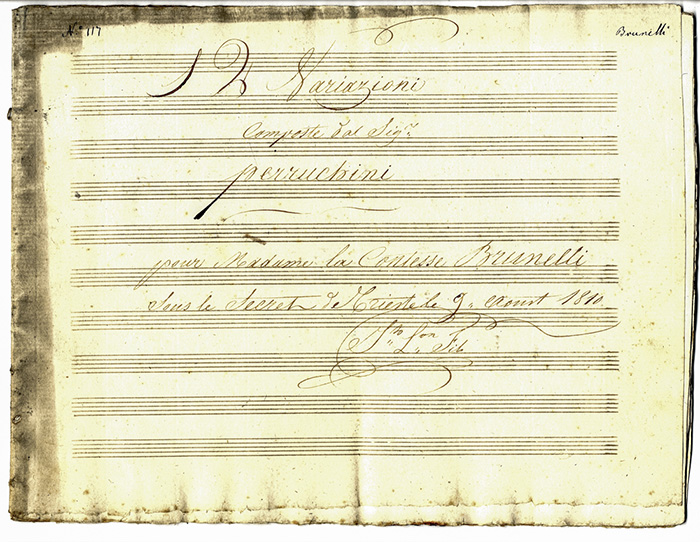 N° 117
Brunelli
12 Variazioni
Composte dal Sigr
Perruchini
pour Madame la Contesse Brunelli
Sous le Secret de Trieste le 9 Aoust 1810